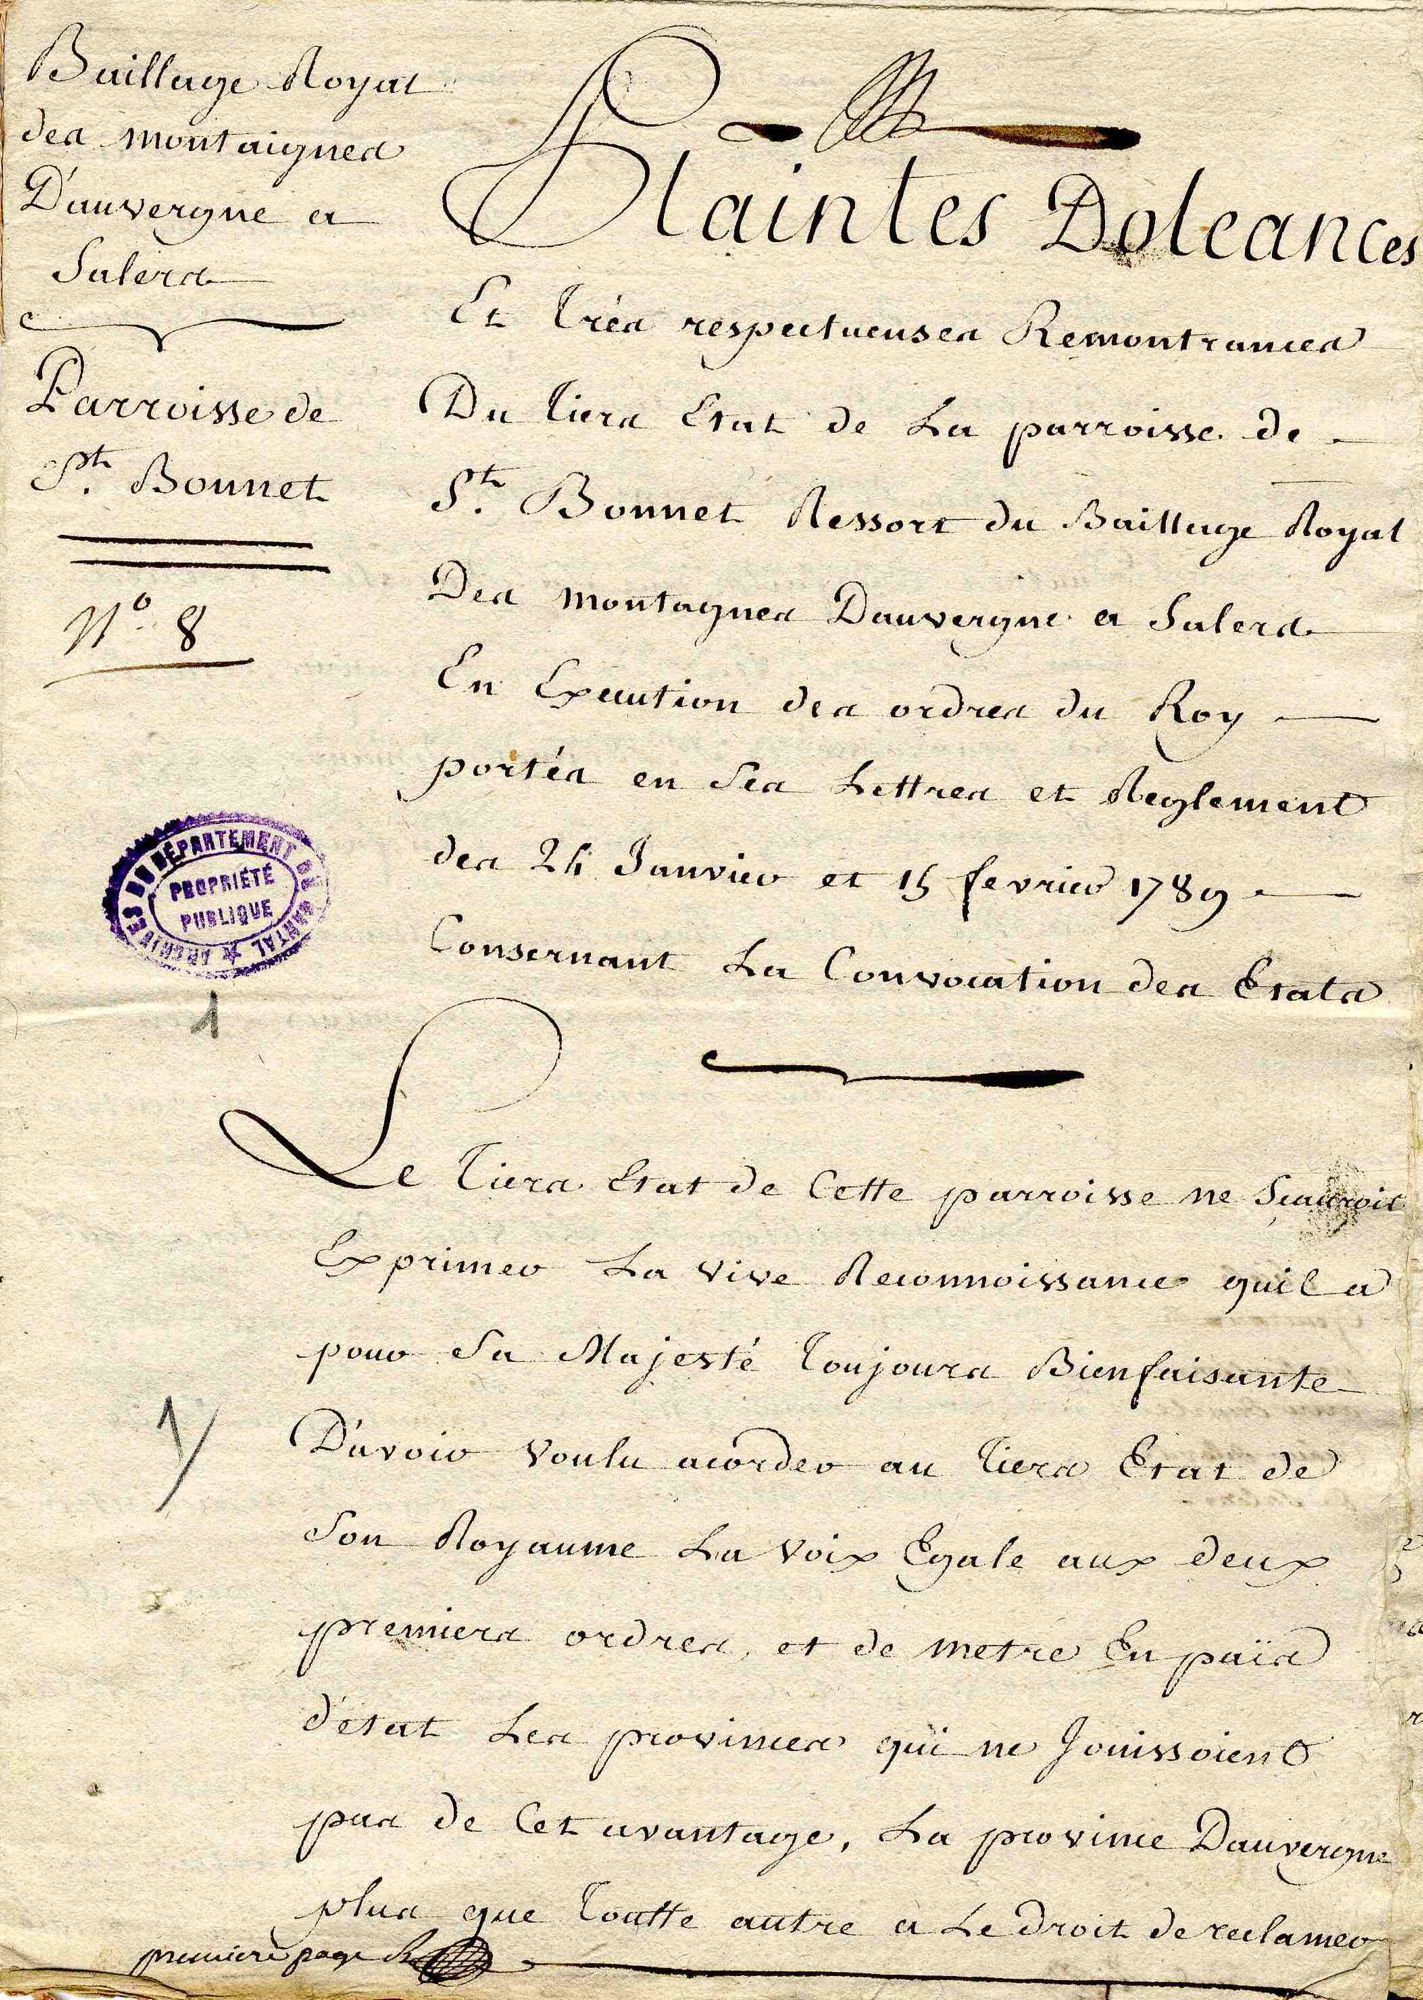 Baillage Royal
des montaignes
D'auvergne a
Salers
Parroisse de
St. Bonnet
N° 8
ARCHIVES DU DÉPARTEMENT DU CANTAL
PROPRIÉTÉ
PUBLIQUE
1
Plaintes Doleances
Et Trés respectueuses Remontrances
Du Tiers Etat de La parroisse de
St. Bonnet Ressort du Baillage Royal
Des montagnes Dauvergne a Salers
En Execution des ordres du Roy
portés en Ses Lettres et Reglement
des 24 Janvier et 15 fevrier 1789
Consernant La Convocation des Etats
Le Tiers Etat de Cette parroisse ne Sçauroit
Exprimer La vive Reconnoissance quil a
pour Sa Majesté Toujours Bienfaisante
D'avoir voulu acorder au Tiers Etat de
1/
Son Royaume La voix Egale aux deux
premiers ordres, et de metre En païs
d'état Les provinces qui ne Jouissoient
pas de Cet avantage, La province Dauvergne
plus que Toutte autre a Le droit de reclamer
premiere page